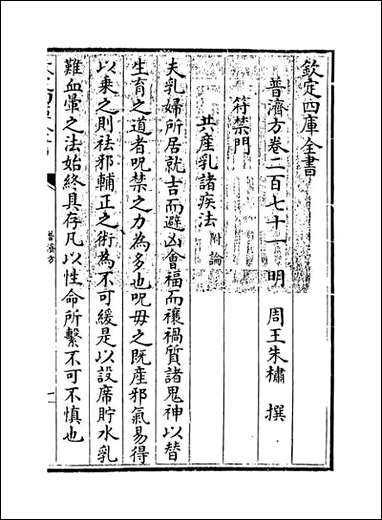 欽定四庫全書
普濟方卷二百七十一 明 周王朱橚 撰
符禁門
共產乳諸疾法 附論
夫乳婦所居就吉而避凶會福而禳禍質諸鬼神以替
生育之道者呪禁之力為多也呪毋之既產邪氣易得
以乗之則祛邪輔正之術為不可緩是以設席貯水乳
難血暈之法始終具存凡以性命所繫不可不慎也
普濟方
一